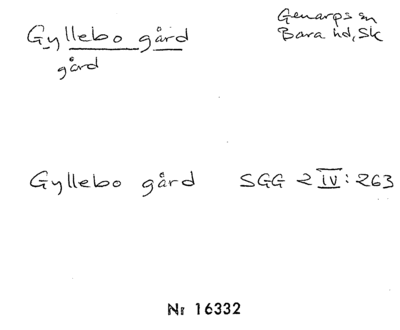 Gyllebo gård
Genarps sn
Bara hd, Sk
gård
Gyllebo gård SGG 2 IV: 263
Nr 16332